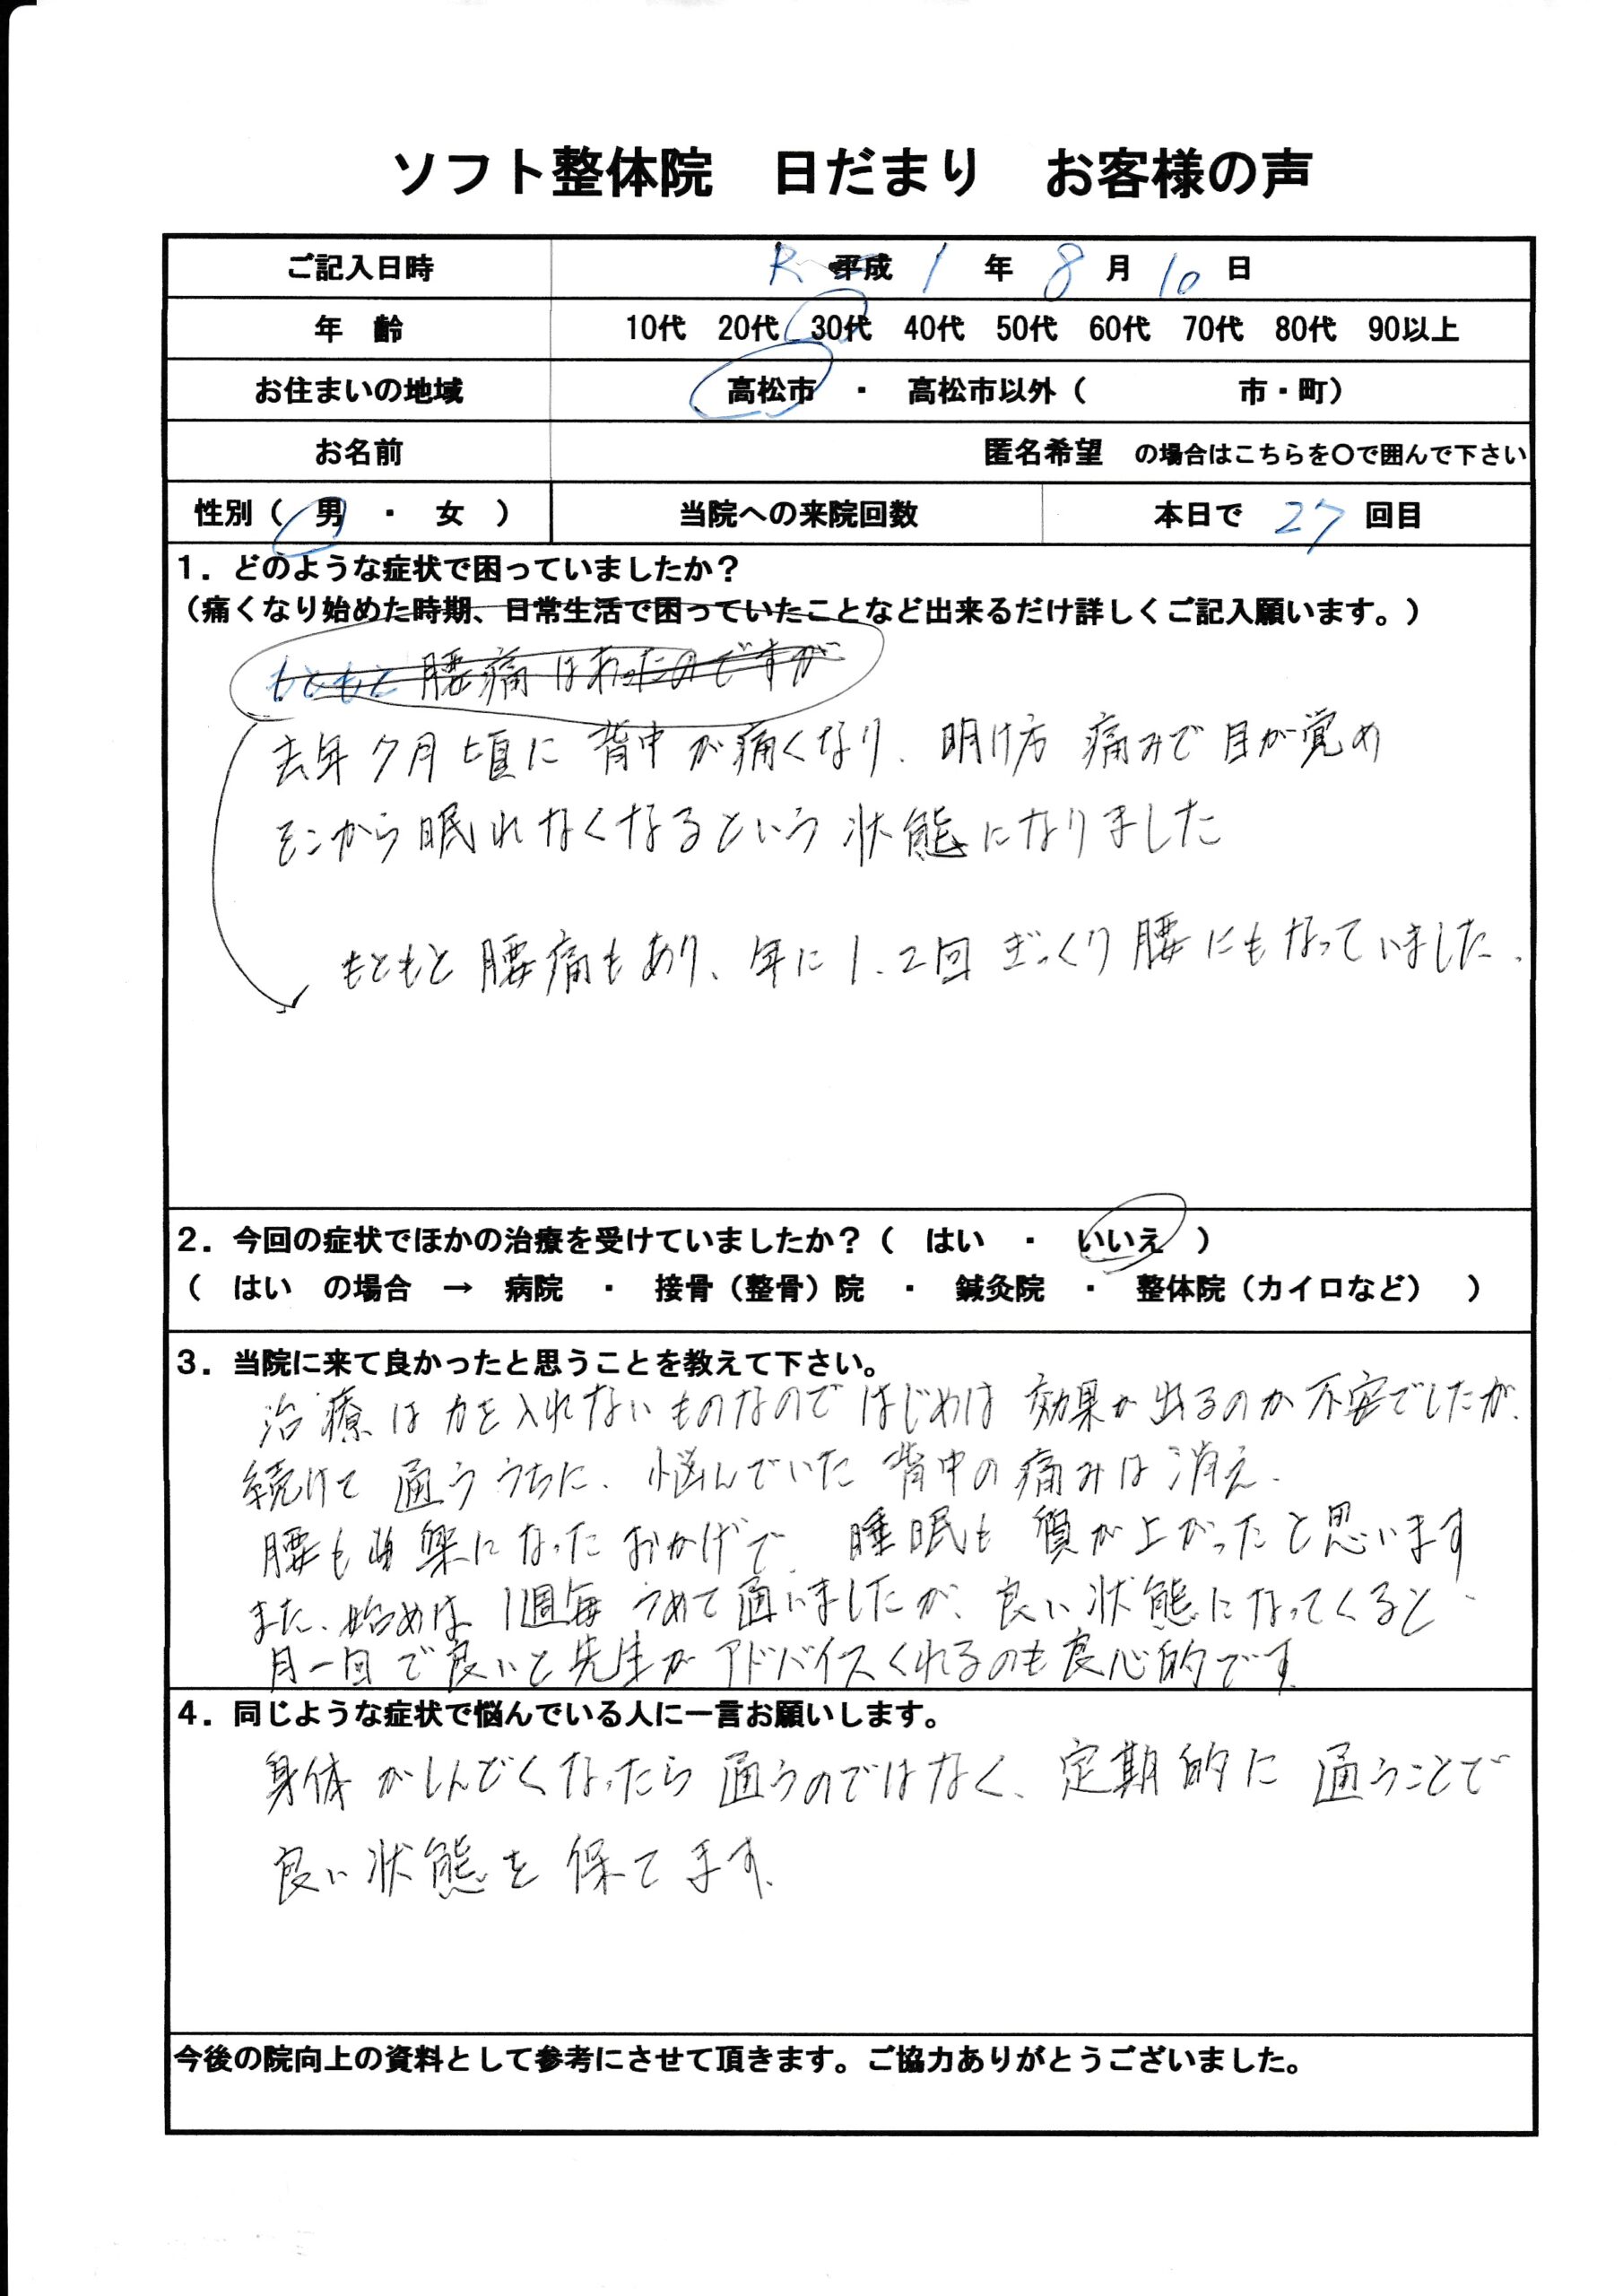 ソフト整体院　日だまり　お客様の声
ご記入日時　R 平成 1 年 8 月 10 日
年　齢　10代　20代　30代　40代　50代　60代　70代　80代　90以上
お住まいの地域　高松市　・　高松市以外（　　　　　市・町）
お名前　匿名希望　の場合はこちらを〇で囲んで下さい
性別（　男　・　女　）　当院への来院回数　本日で 27 回目
1．どのような症状で困っていましたか？
（痛くなり始めた時期、日常生活で困っていたことなど出来るだけ詳しくご記入願います。）
もともと腰痛はあったのですが
去年7月頃に背中が痛くなり、明け方 痛みで目が覚め
そこから眠れなくなるという状態になりました
もともと腰痛もあり、年に1、2回ぎっくり腰にもなっていました、
2．今回の症状でほかの治療を受けていましたか？（　はい　・　いいえ　）
（　はい　の場合　→　病院　・　接骨（整骨）院　・　鍼灸院　・　整体院（カイロなど）　）
3．当院に来て良かったと思うことを教えて下さい。
治療は力を入れないものなのではじめは効果が出るのか不安でしたが、
続けて通ううちに、悩んでいた背中の痛みは消え、
腰も 楽になったおかげで、睡眠も質が上がったと思います
また、始めは、1週毎 つめて通いましたが、良い状態になってくると、
月一回で良いと先生がアドバイスくれるのも良心的です、
4．同じような症状で悩んでいる人に一言お願いします。
身体がしんどくなったら通うのではなく、定期的に通うことで
良い状態を保てます、
今後の院向上の資料として参考にさせて頂きます。ご協力ありがとうございました。